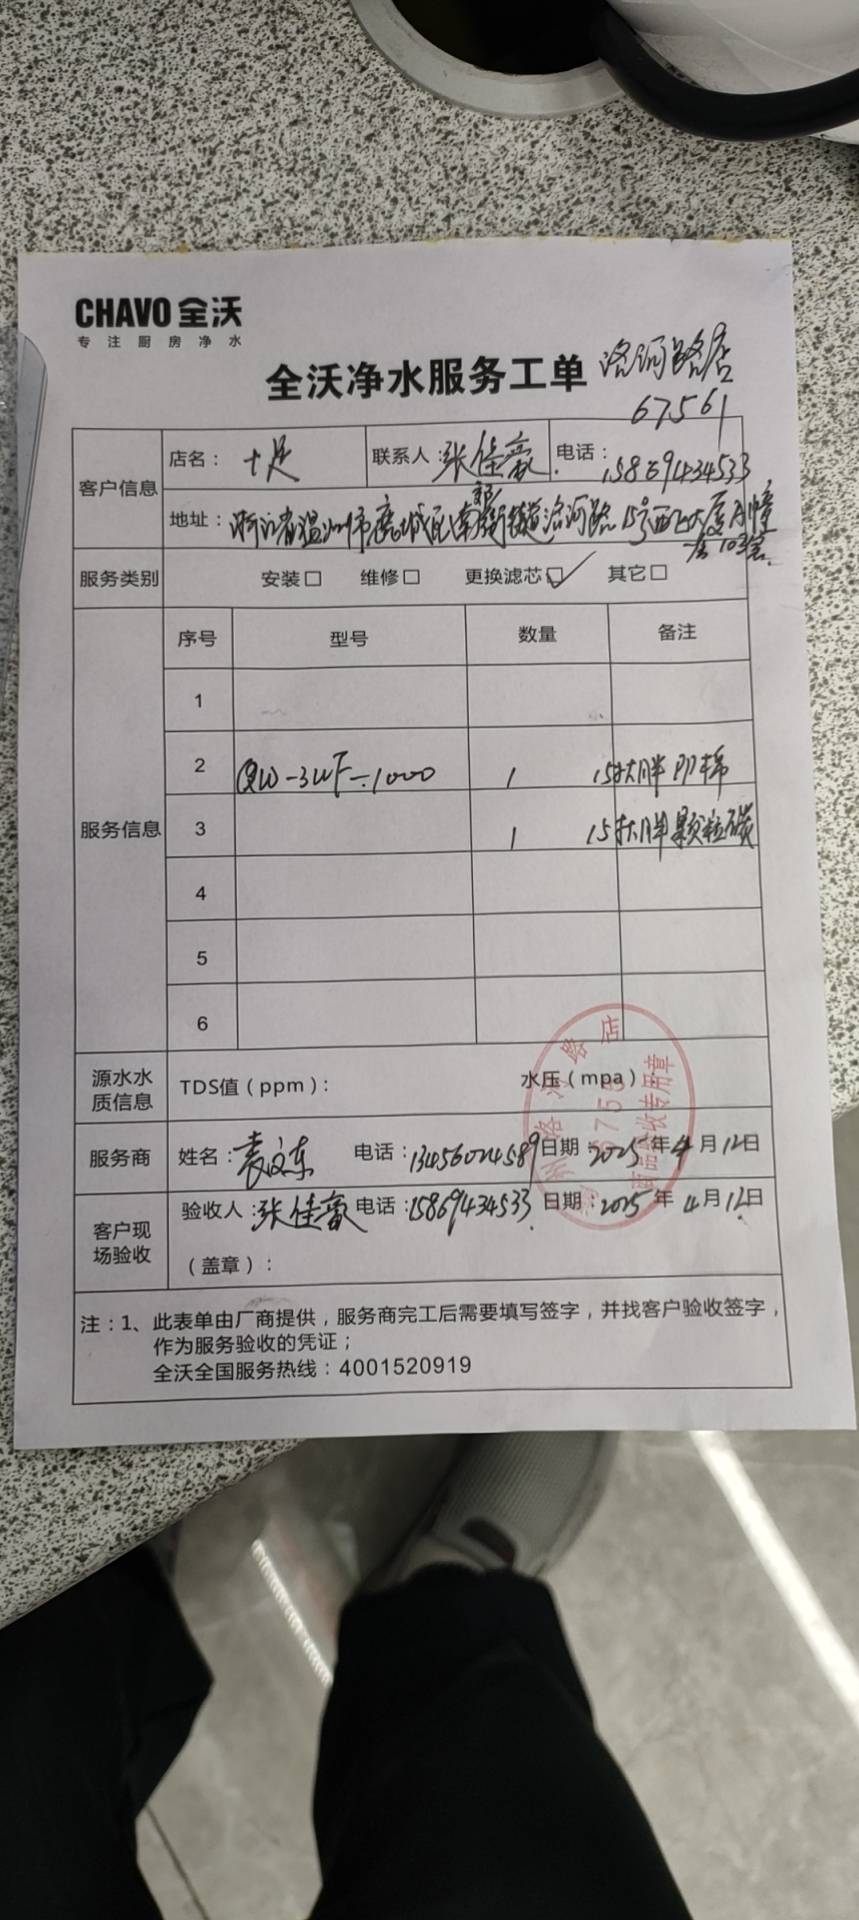 CHAVO 全沃
专注厨房净水
全沃净水服务工单 洛河路店
67561
客户信息 店名： 十足 联系人：张佳豪 电话：15869434533
地址：浙江省温州市鹿城区南郊街道洛河路15号西
一层103室
服务类别 安装□ 维修□ 更换滤芯☑ 其它□
服务信息 序号 型号 数量 备注
1
2 QW-3UF-1000 1 15寸大胖PP棉
3 1 15寸大胖颗粒碳
4
5
6
源水水质信息 TDS值（ppm）： 水压（mpa）
服务商 姓名：袁文东 电话：13456024589 日期：2025年4月12日
客户现场验收 验收人：张佳豪 电话：15869434533 日期：2025年4月12日
（盖章）：
洛河路店
商品验收专用章
注：1、此表单由厂商提供，服务商完工后需要填写签字，并找客户验收签字，
作为服务验收的凭证；
全沃全国服务热线：4001520919